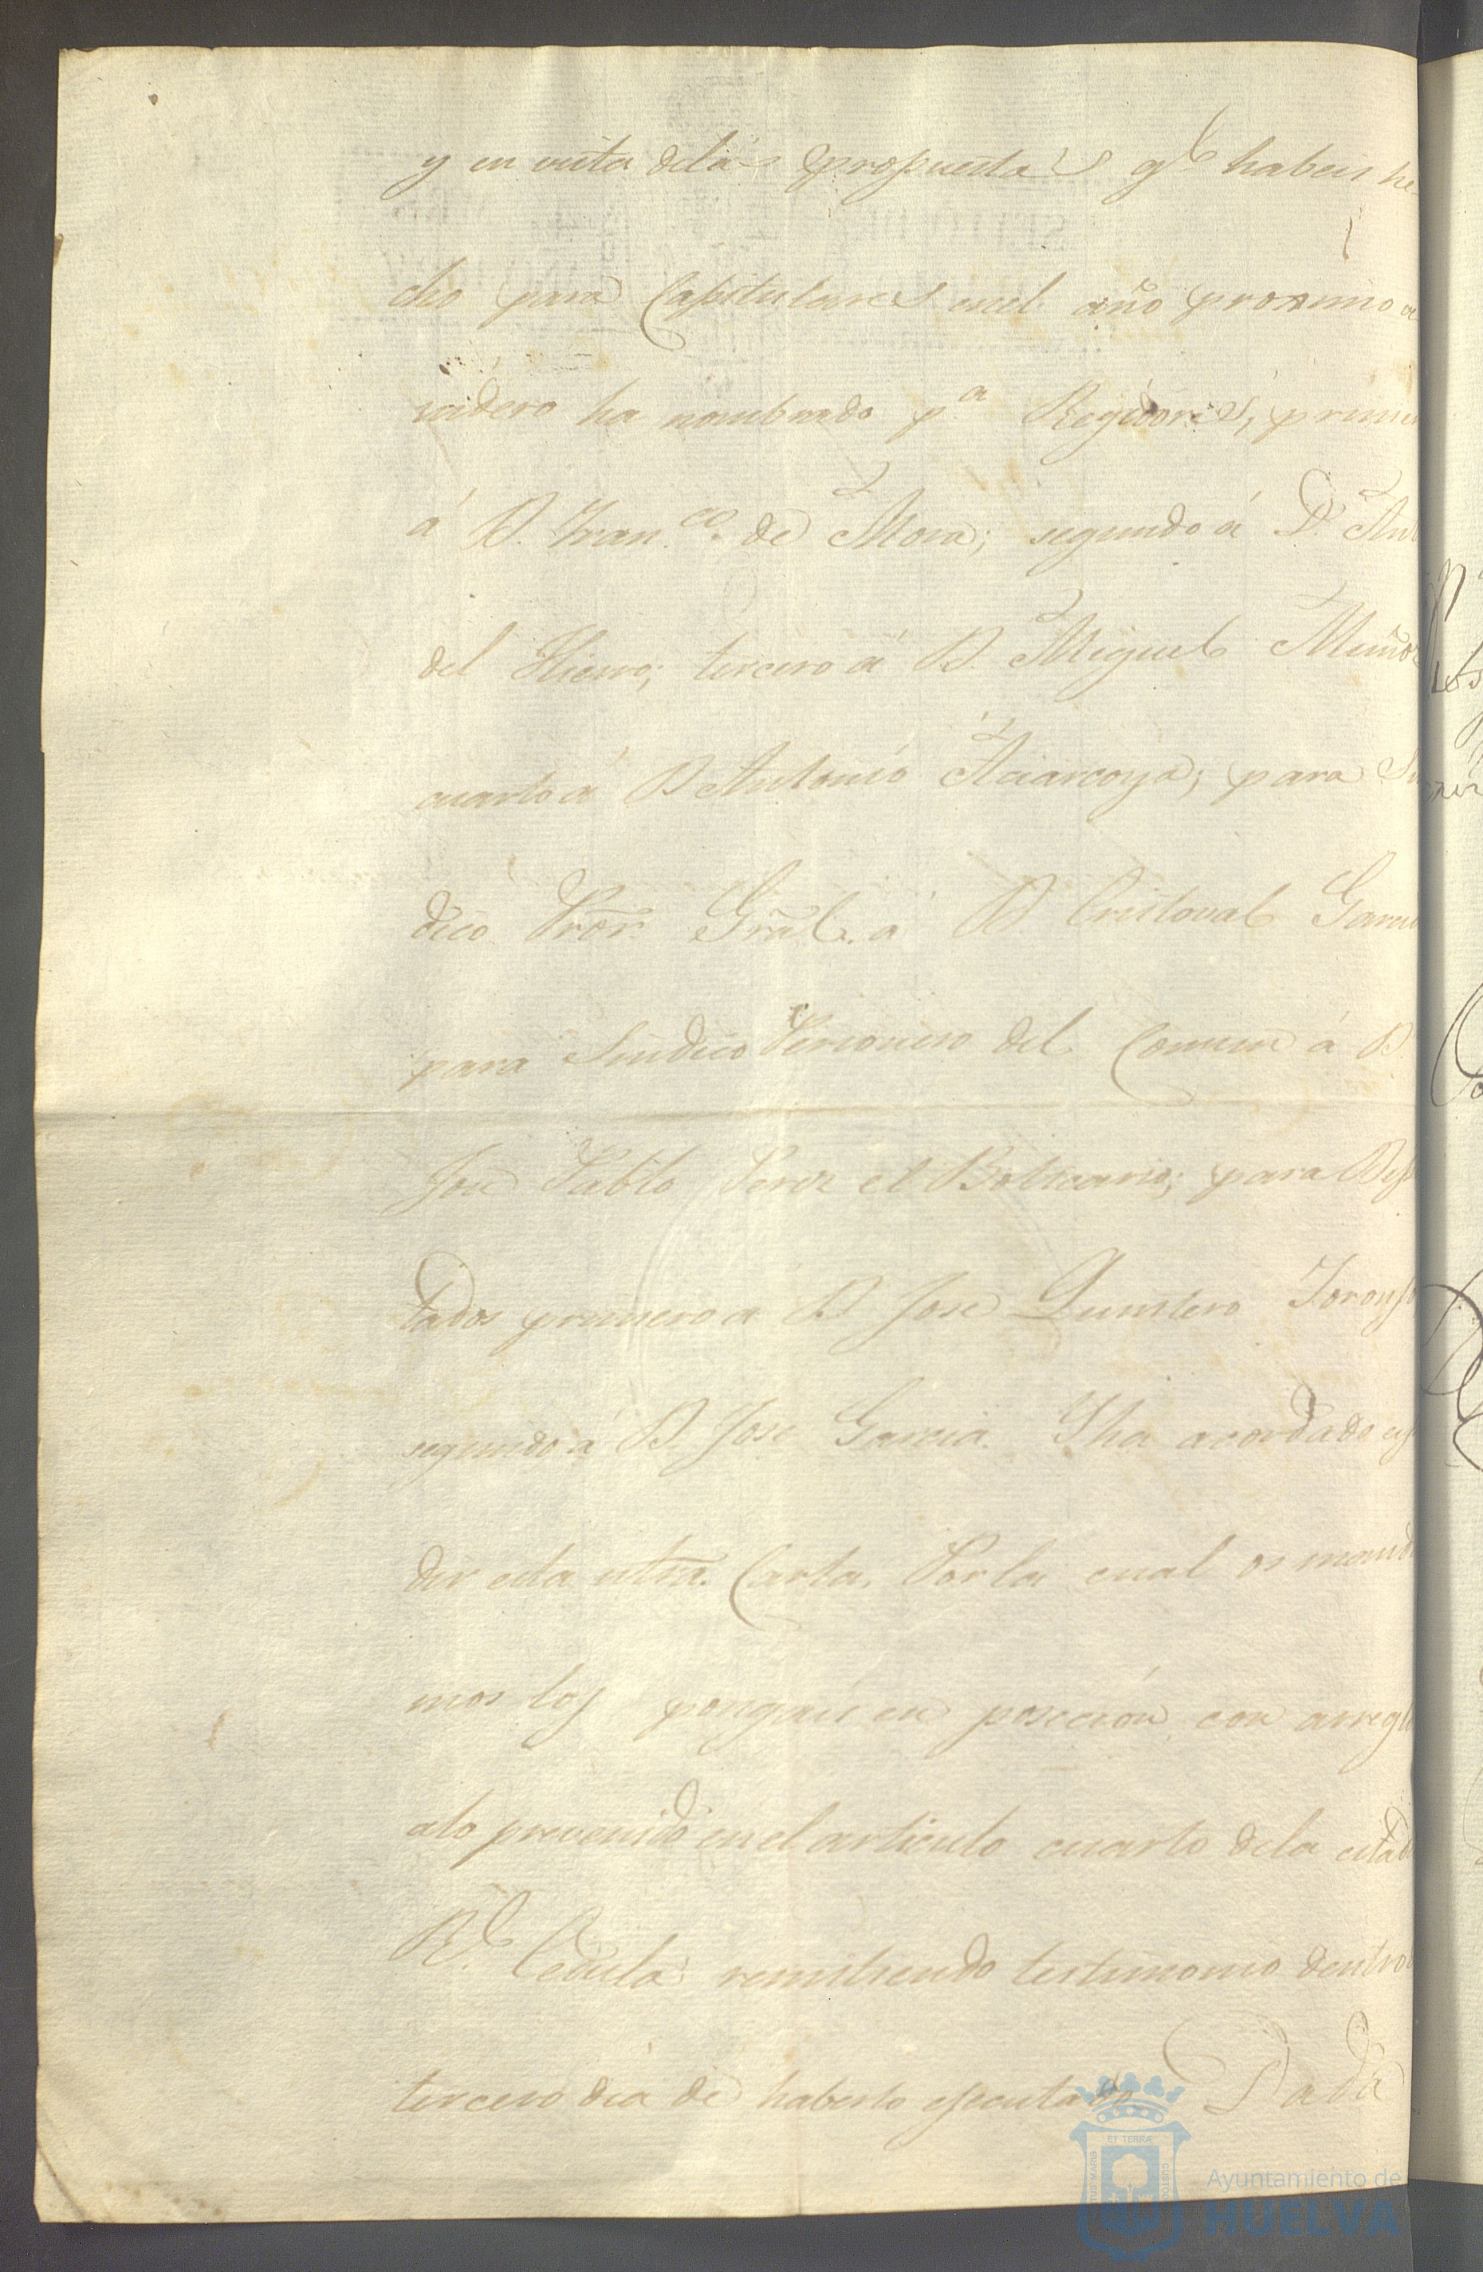 y en vista de las propuestas q.e habeis he
cho para Capitulares en el año proximo a
nidero ha nombrado p.a Regidores, prime
á D. Fran.co de Mora; segundo á D. Ant
del Hierro; tercero á D. Miguel Muño
cuarto á D. Antonio para
dico Pror. Gral. á D. Cristoval Garci
para Sindico Personero del Comun á D.
José Pablo Perez el Boticario; para Dip
tados primero á D. Jose Quintero
segundo á D. Jose Garcia. Y ha acordado esp
dir esta ntra. Carta. Por la cual os mand
mos los pongais en posecion con arregl
a lo prevenido en el articulo cuarto de la citad
R.l Cedula remitiendo testimonio dentro
tercero dia de haberlo ejecutado. Dada
ET TERRÆ
PORTUS MARIS
CUSTODIA
Ayuntamiento de
HUELVA